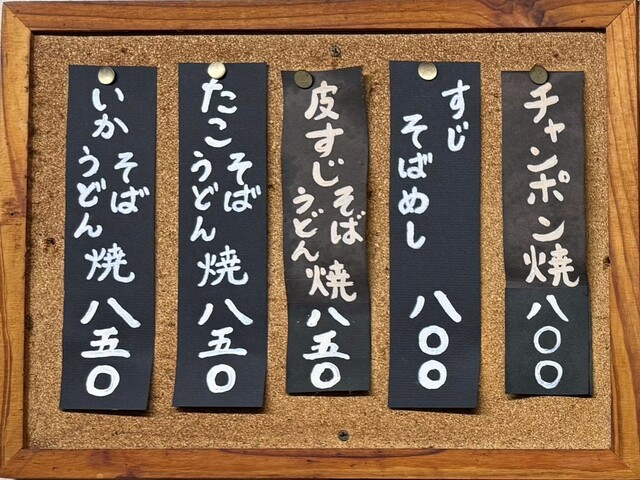 チャンポン焼 八〇〇
すじ
そばめし 八〇〇
皮すじ そば
うどん 焼 八五〇
たこ そば
うどん 焼 八五〇
いか そば
うどん 焼 八五〇